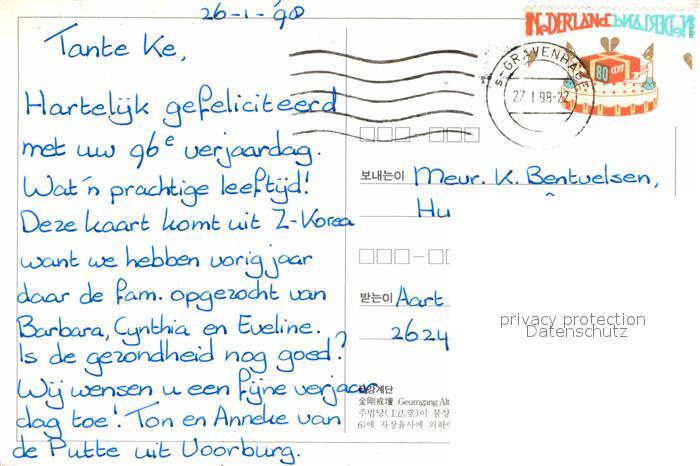 26-1-'98
Tante Ke,
Hartelijk gefeliciteerd
met uw 96e verjaardag.
Wat 'n prachtige leeftijd!
Deze kaart komt uit Z-Korea
want we hebben vorig jaar
daar de fam. opgezocht van
Barbara, Cynthia en Eveline.
Is de gezondheid nog goed?
Wij wensen u een fijne verjaar
dag toe! Ton en Anneke van
de Putte uit Voorburg.
NEDERLAND
80 CENT
'S-GRAVENHAGE
27.I.98-22
보내는이 Meur. K. Bentvelsen,
Hu
받는이 Aart
2624
privacy protection
Datenschutz
금강계단
金剛戒壇 Geumgang Alt
주법당(主法堂)이 불상
6)에 자장율사에 의하